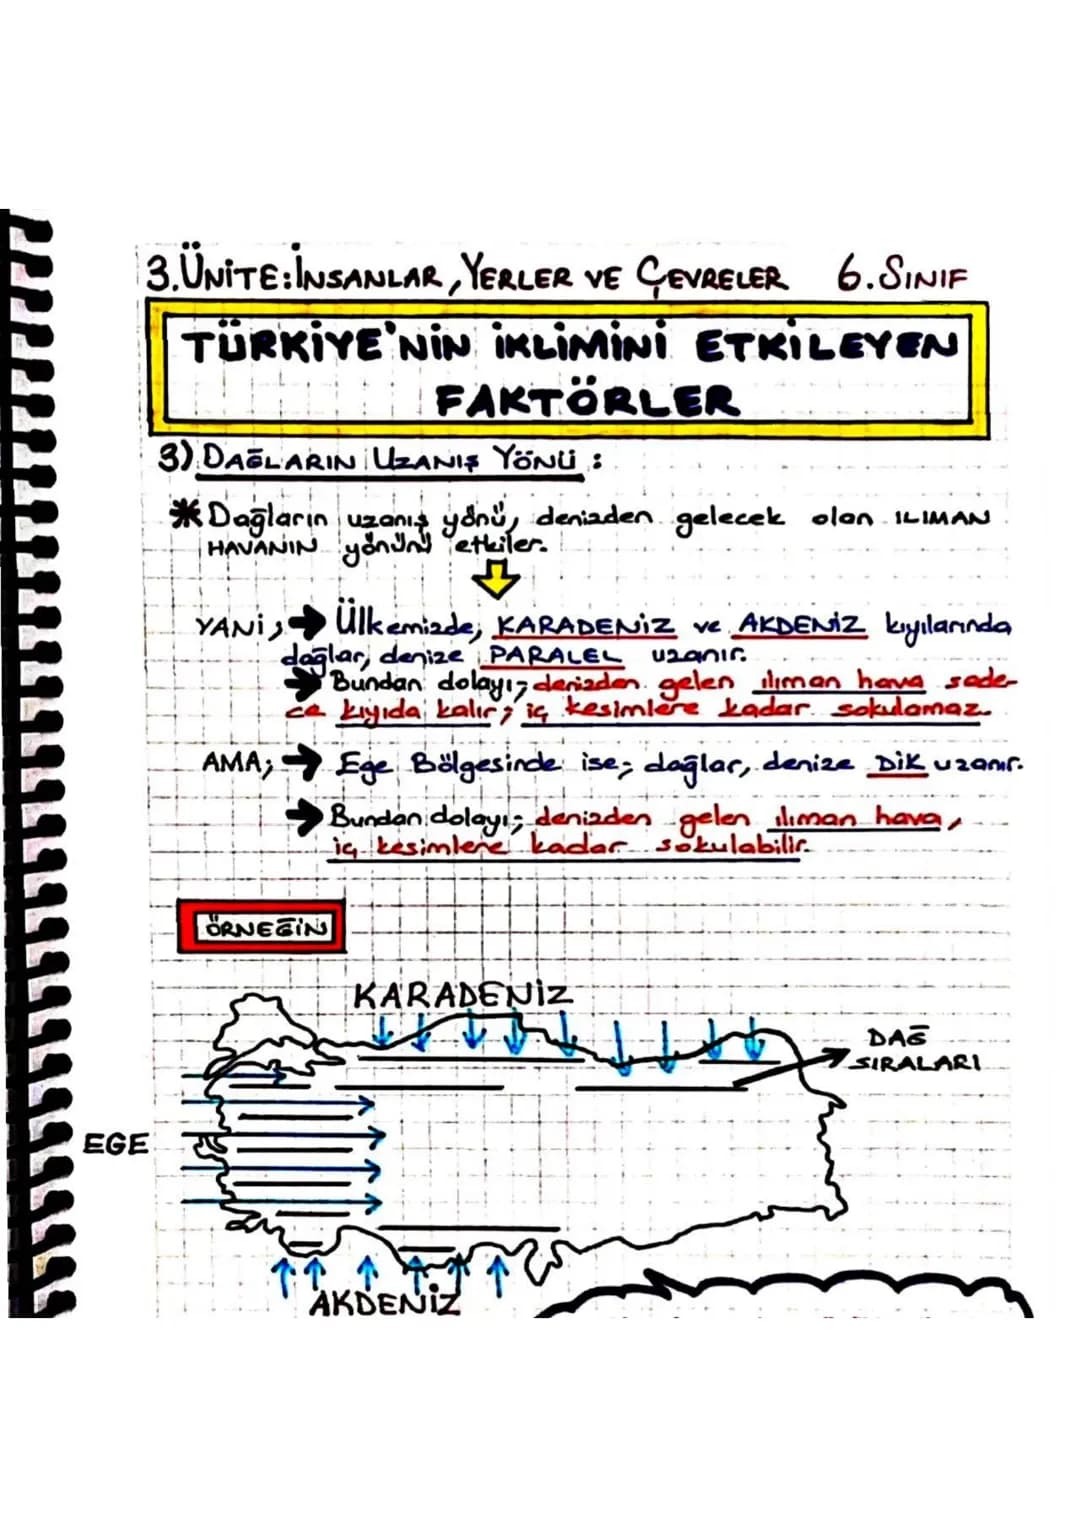 3.ÜNİTE:İNSANLAR, YERLER VE ÇEVRELER 6.SINIF
TÜRKİYE'NİN İKLİMİNİ ETKİLEYEN
FAKTÖRLER
3) DAĞLARIN UZANIŞ YÖNÜ :
* Dağların uzanış yönü, denizden gelecek olan ILIMAN
HAVANIN yönünü etkiler.
YANİ; → Ülkemizde; KARADENİZ ve AKDENİZ kıyılarında
dağlar, denize PARALEL uzanır.
→ Bundan dolayı; denizden gelen ılıman hava sade-
ce kıyıda kalır; iç kesimlere kadar sokulamaz.
AMA; → Ege Bölgesinde ise; dağlar, denize DİK uzanır.
→ Bundan dolayı; denizden gelen ılıman hava,
iç kesimlere kadar sokulabilir.
ÖRNEĞİN
KARADENİZ
DAĞ
SIRALARI
EGE
AKDENİZ